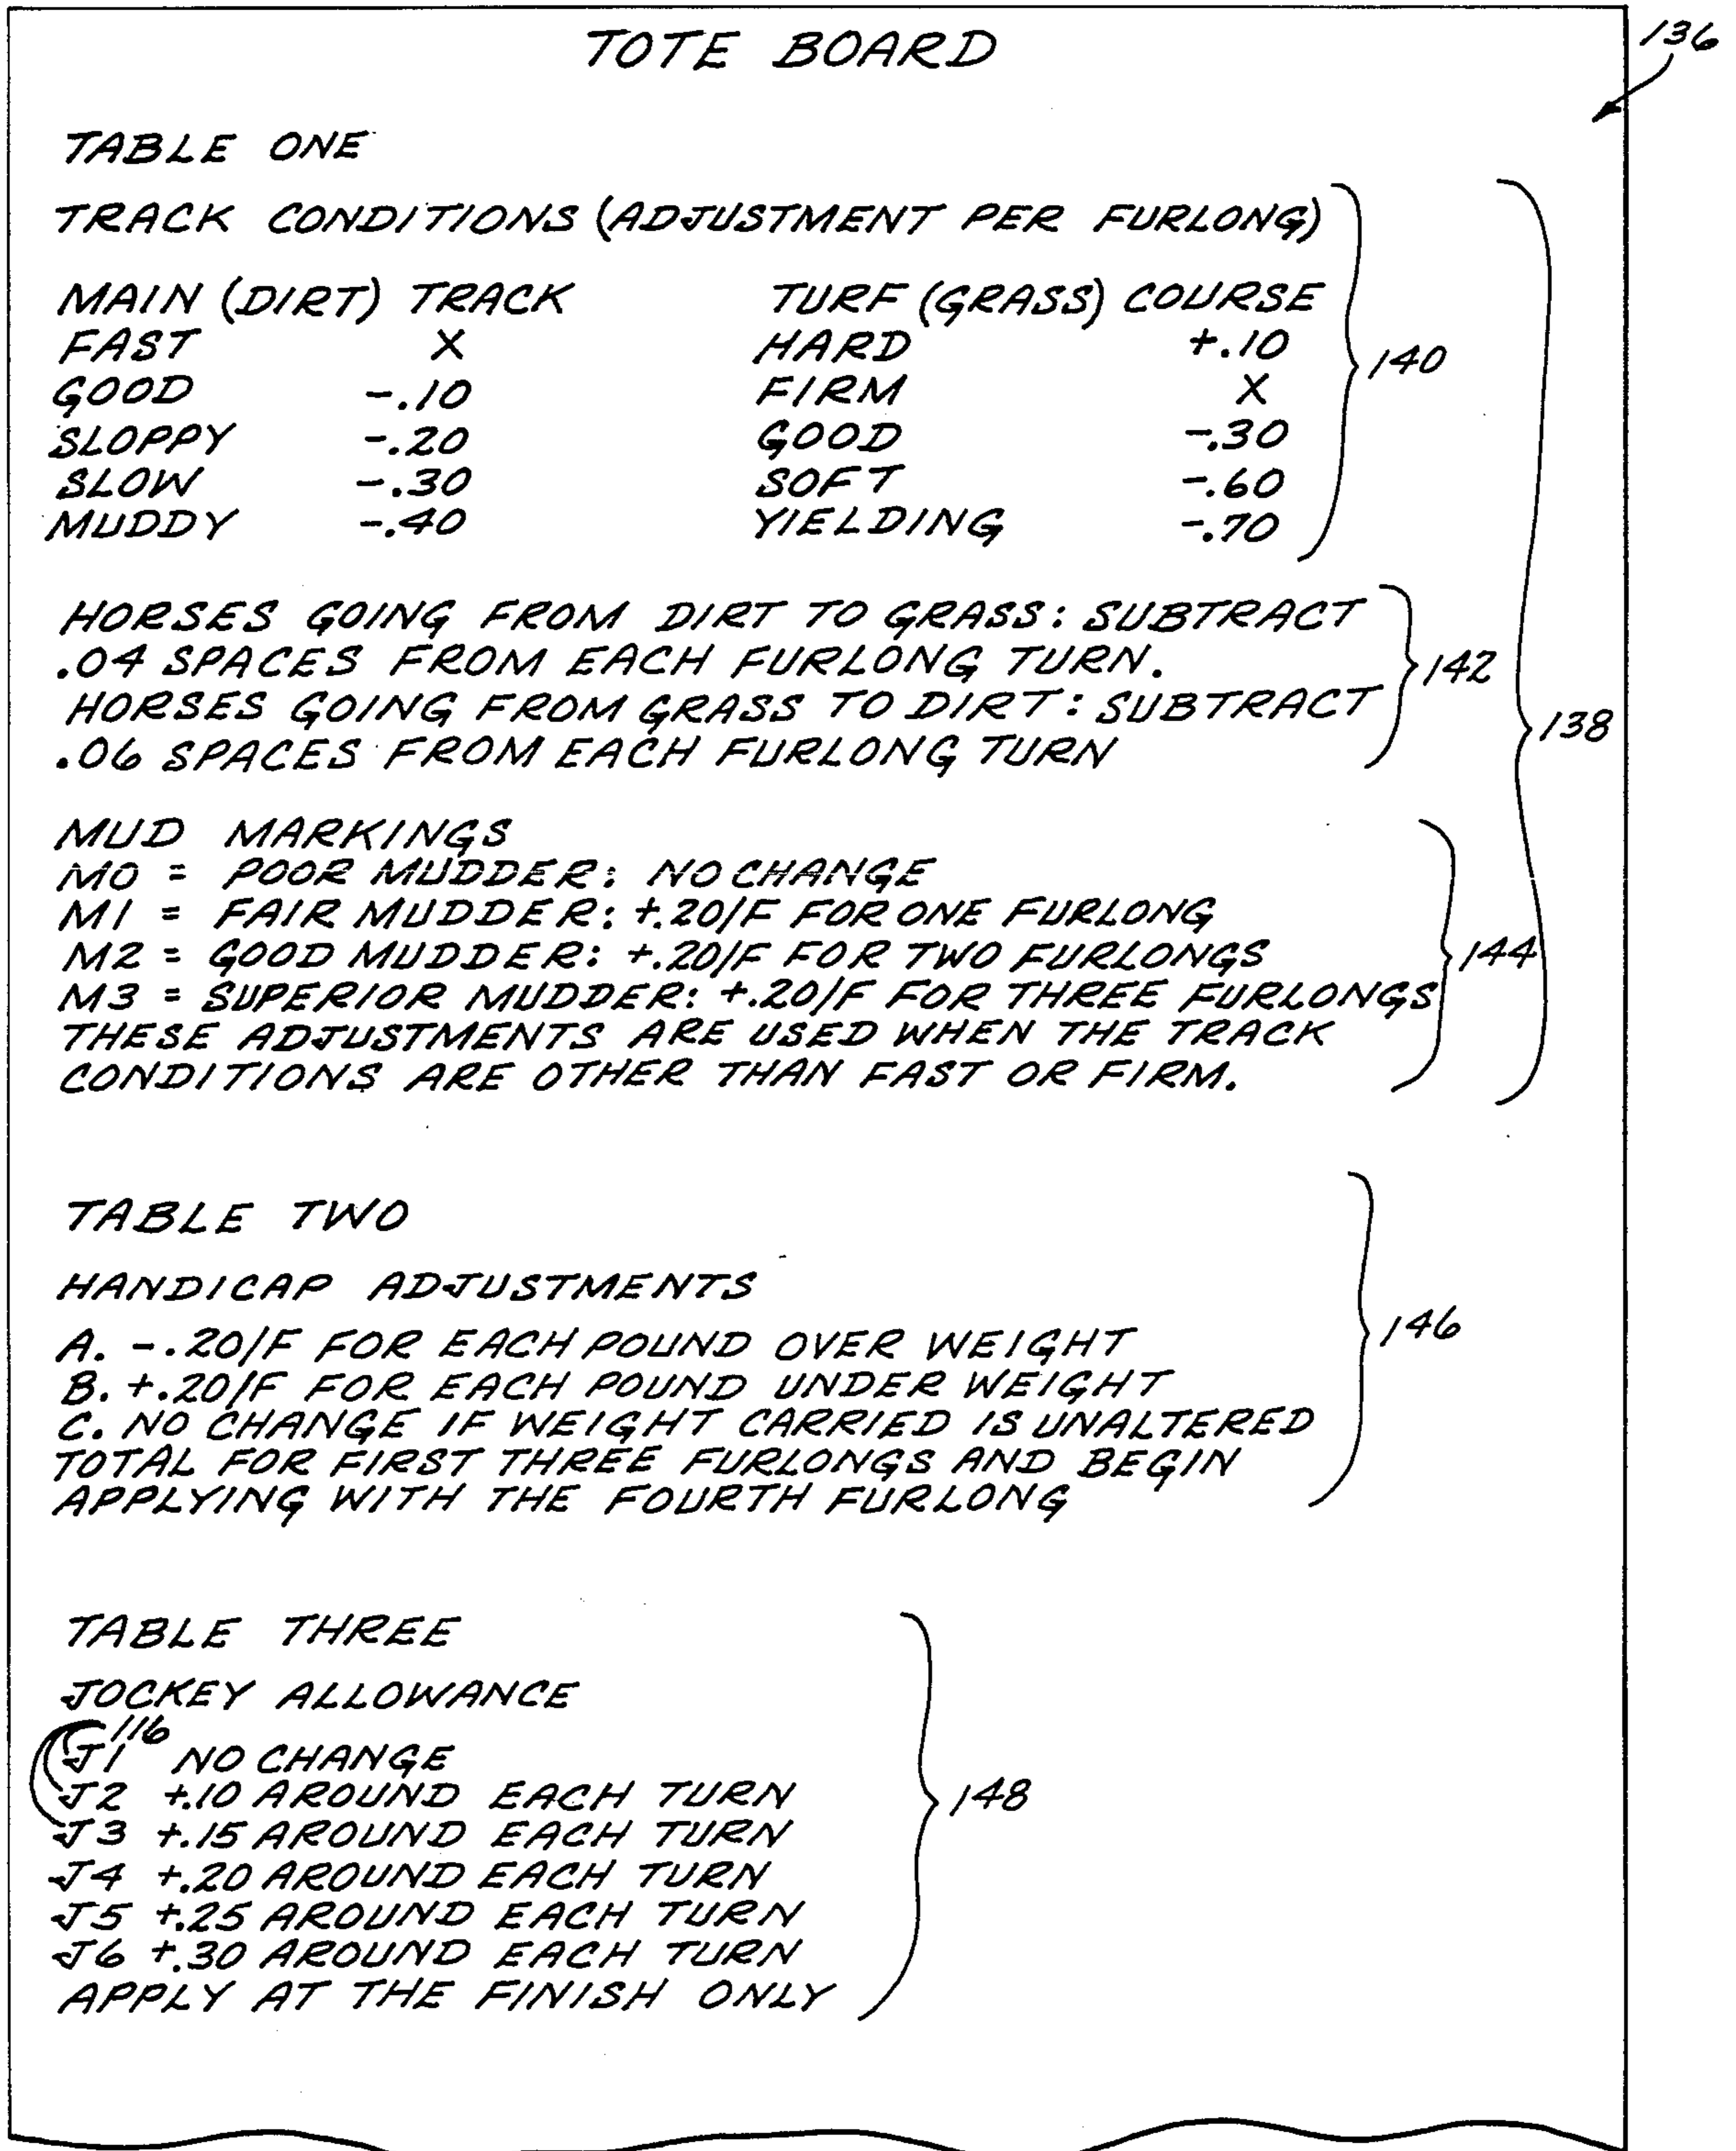 TOTE BOARD
136
TABLE ONE
TRACK CONDITIONS (ADJUSTMENT PER FURLONG)
MAIN (DIRT) TRACK TURF (GRASS) COURSE
FAST X HARD +.10
GOOD -.10 FIRM X
140
SLOPPY -.20 GOOD -.30
SLOW -.30 SOFT -.60
MUDDY -.40 YIELDING -.70
HORSES GOING FROM DIRT TO GRASS: SUBTRACT
.04 SPACES FROM EACH FURLONG TURN.
142
HORSES GOING FROM GRASS TO DIRT: SUBTRACT
.06 SPACES FROM EACH FURLONG TURN
138
MUD MARKINGS
M0 = POOR MUDDER: NO CHANGE
M1 = FAIR MUDDER: +.20/F FOR ONE FURLONG
M2 = GOOD MUDDER: +.20/F FOR TWO FURLONGS
144
M3 = SUPERIOR MUDDER: +.20/F FOR THREE FURLONGS
THESE ADJUSTMENTS ARE USED WHEN THE TRACK
CONDITIONS ARE OTHER THAN FAST OR FIRM.
TABLE TWO
HANDICAP ADJUSTMENTS
A. -.20/F FOR EACH POUND OVER WEIGHT
146
B. +.20/F FOR EACH POUND UNDER WEIGHT
C. NO CHANGE IF WEIGHT CARRIED IS UNALTERED
TOTAL FOR FIRST THREE FURLONGS AND BEGIN
APPLYING WITH THE FOURTH FURLONG
TABLE THREE
JOCKEY ALLOWANCE
116
J1 NO CHANGE
J2 +.10 AROUND EACH TURN
148
J3 +.15 AROUND EACH TURN
J4 +.20 AROUND EACH TURN
J5 +.25 AROUND EACH TURN
J6 +.30 AROUND EACH TURN
APPLY AT THE FINISH ONLY